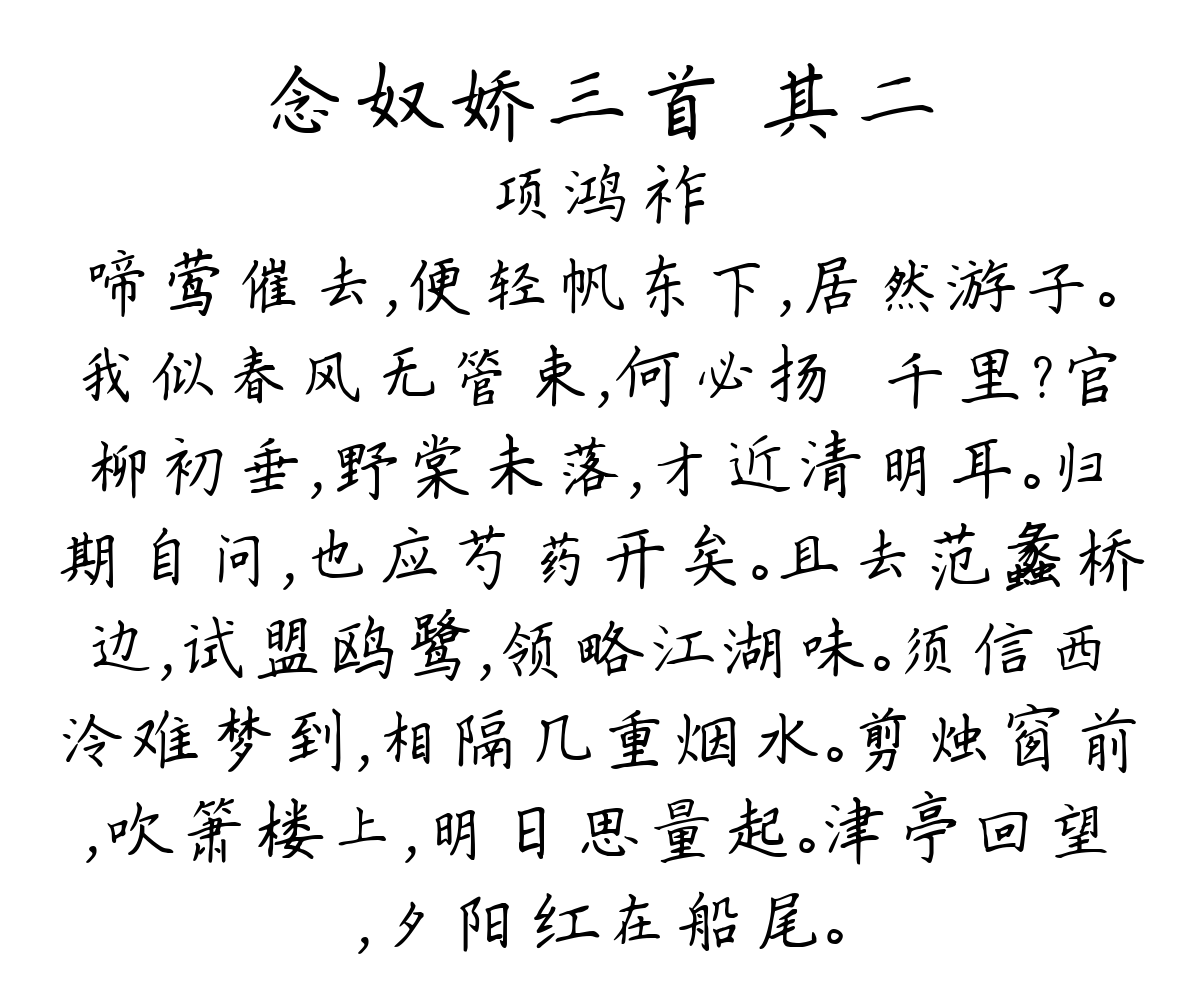 念奴娇三首 其二
项鸿祚
啼莺催去,便轻帆东下,居然游子。
我似春风无管束,何必扬 千里?官
柳初垂,野棠未落,才近清明耳。归
期自问,也应芍药开矣。且去范蠡桥
边,试盟鸥鹭,领略江湖味。须信西
泠难梦到,相隔几重烟水。剪烛窗前
,吹箫楼上,明日思量起。津亭回望
,夕阳红在船尾。